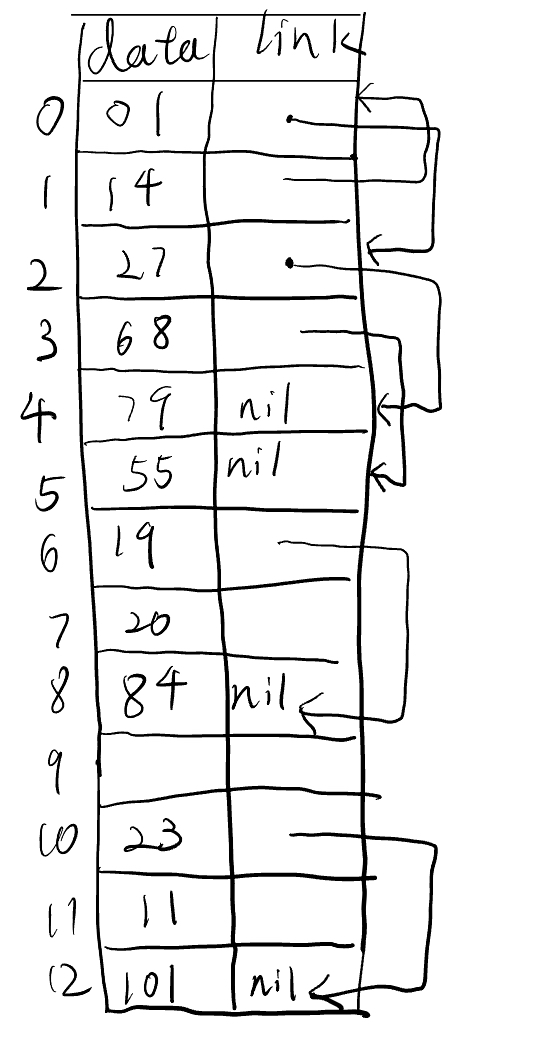 data link
0 01
1 14
2 27
3 68
4 79 nil
5 55 nil
6 19
7 20
8 84 nil
9
10 23
11 11
12 101 nil